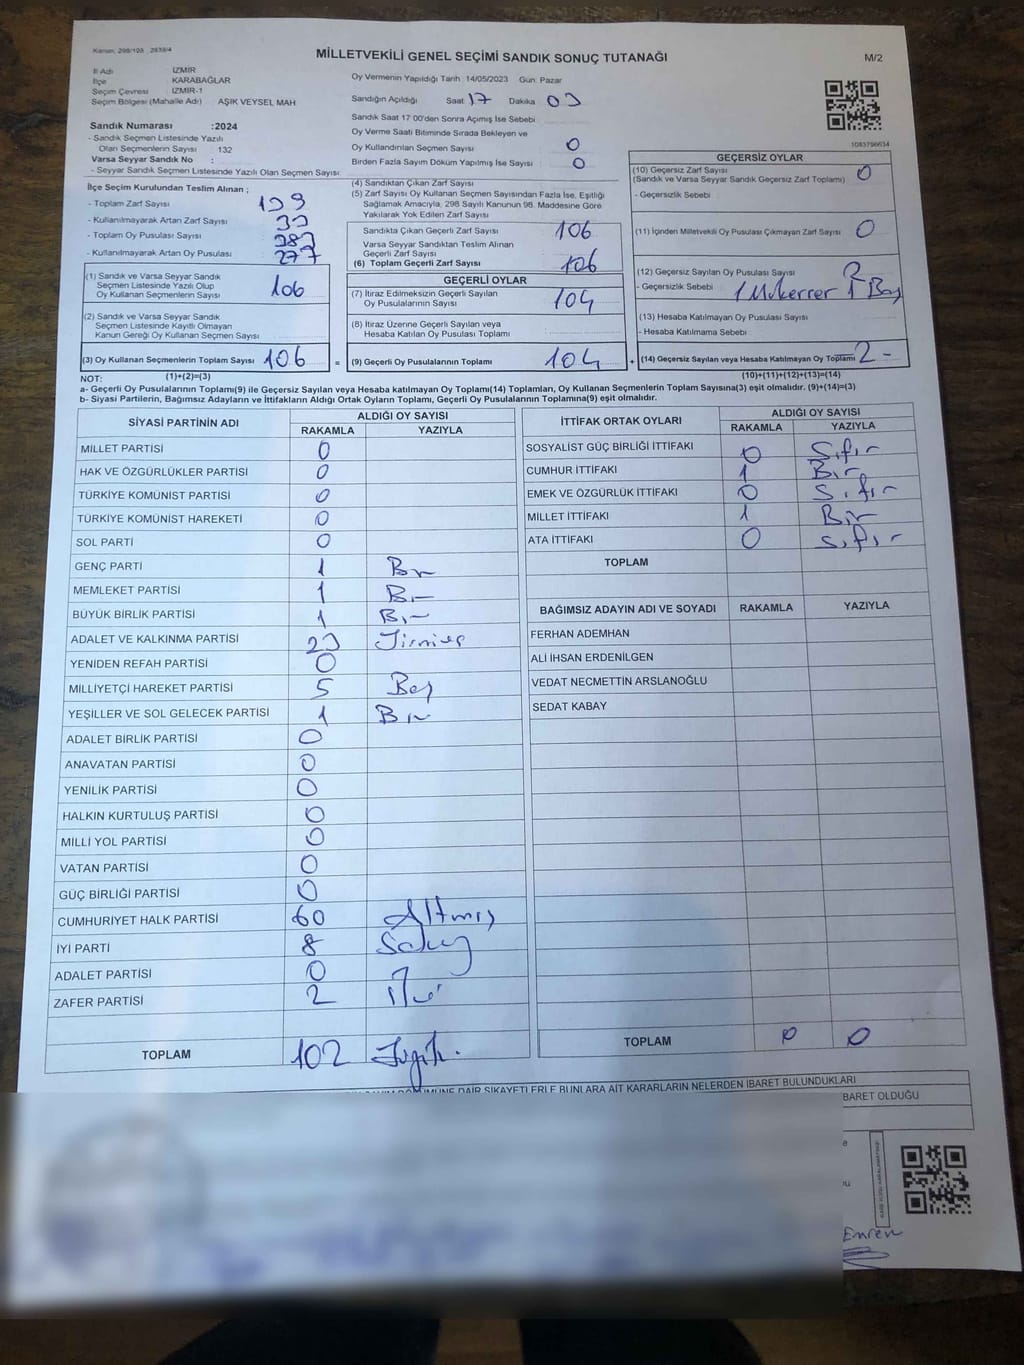 Kanun: 298/105 2839/4
MİLLETVEKİLİ GENEL SEÇİMİ SANDIK SONUÇ TUTANAĞI
M/2
İl Adı İZMİR
İlçe KARABAĞLAR
Seçim Çevresi İZMİR-1
Seçim Bölgesi (Mahalle Adı) AŞIK VEYSEL MAH
Sandık Numarası :2024
- Sandık Seçmen Listesinde Yazılı
Olan Seçmenlerin Sayısı 132
Varsa Seyyar Sandık No :
- Seyyar Sandık Seçmen Listesinde Yazılı Olan Seçmen Sayısı
Oy Vermenin Yapıldığı Tarih 14/05/2023 Gün: Pazar
Sandığın Açıldığı Saat 17 Dakika 03
Sandık Saat 17 00'den Sonra Açımış İse Sebebi
Oy Verme Saati Bitiminde Sırada Bekleyen ve
Oy Kullandırılan Seçmen Sayısı 0
Birden Fazla Sayım Döküm Yapılmış İse Sayısı 0
1083796634
İlçe Seçim Kurulundan Teslim Alınan ;
- Toplam Zarf Sayısı 139
- Kullanılmayarak Artan Zarf Sayısı 33
- Toplam Oy Pusulası Sayısı 383
- Kullanılmayarak Artan Oy Pusulası 277
(1) Sandık ve Varsa Seyyar Sandık
Seçmen Listesinde Yazılı Olup
Oy Kullanan Seçmenlerin Sayısı 106
(2) Sandık ve Varsa Seyyar Sandık
Seçmen Listesinde Kayıtlı Olmayan
Kanun Gereği Oy Kullanan Seçmen Sayısı
(3) Oy Kullanan Seçmenlerin Toplam Sayısı 106
(4) Sandıktan Çıkan Zarf Sayısı
(5) Zarf Sayısı Oy Kullanan Seçmen Sayısından Fazla İse, Eşitliği
Sağlamak Amacıyla, 298 Sayılı Kanunun 98. Maddesine Göre
Yakılarak Yok Edilen Zarf Sayısı
Sandıkta Çıkan Geçerli Zarf Sayısı 106
Varsa Seyyar Sandıktan Teslim Alınan
Geçerli Zarf Sayısı
(6) Toplam Geçerli Zarf Sayısı 106
GEÇERLİ OYLAR
(7) İtiraz Edilmeksizin Geçerli Sayılan
Oy Pusulalarının Sayısı 104
(8) İtiraz Üzerine Geçerli Sayılan veya
Hesaba Katılan Oy Pusulası Toplamı
= (9) Geçerli Oy Pusulalarının Toplamı 104
GEÇERSİZ OYLAR
(10) Geçersiz Zarf Sayısı
(Sandık ve Varsa Seyyar Sandık Geçersiz Zarf Toplamı) 0
- Geçersizlik Sebebi
(11) İçinden Milletvekili Oy Pusulası Çıkmayan Zarf Sayısı 0
(12) Geçersiz Sayılan Oy Pusulası Sayısı 2
- Geçersizlik Sebebi 1 Mükerrer 1 Boş
(13) Hesaba Katılmayan Oy Pusulası Sayısı
- Hesaba Katılmama Sebebi
+ (14) Geçersiz Sayılan veya Hesaba Katılmayan Oy Toplamı 2 -
NOT: (1)+(2)=(3)
(10)+(11)+(12)+(13)=(14)
a- Geçerli Oy Pusulalarının Toplamı(9) ile Geçersiz Sayılan veya Hesaba katılmayan Oy Toplamı(14) Toplamları, Oy Kullanan Seçmenlerin Toplam Sayısına(3) eşit olmalıdır. (9)+(14)=(3)
b- Siyasi Partilerin, Bağımsız Adayların ve İttifakların Aldığı Ortak Oyların Toplamı, Geçerli Oy Pusulalarının Toplamına(9) eşit olmalıdır.
SİYASİ PARTİNİN ADI ALDIĞI OY SAYISI
RAKAMLA YAZIYLA
MİLLET PARTİSİ 0
HAK VE ÖZGÜRLÜKLER PARTİSİ 0
TÜRKİYE KOMÜNİST PARTİSİ 0
TÜRKİYE KOMÜNİST HAREKETİ 0
SOL PARTİ 0
GENÇ PARTİ 1 Bir
MEMLEKET PARTİSİ 1 Bir
BÜYÜK BİRLİK PARTİSİ 1 Bir
ADALET VE KALKINMA PARTİSİ 23 Yirmiüç
YENİDEN REFAH PARTİSİ 0
MİLLİYETÇİ HAREKET PARTİSİ 5 Beş
YEŞİLLER VE SOL GELECEK PARTİSİ 1 Bir
ADALET BİRLİK PARTİSİ 0
ANAVATAN PARTİSİ 0
YENİLİK PARTİSİ 0
HALKIN KURTULUŞ PARTİSİ 0
MİLLİ YOL PARTİSİ 0
VATAN PARTİSİ 0
GÜÇ BİRLİĞİ PARTİSİ 0
CUMHURİYET HALK PARTİSİ 60 Altmış
İYİ PARTİ 8 Sekiz
ADALET PARTİSİ 0
ZAFER PARTİSİ 2 İki
TOPLAM 102 Yüziki.
İTTİFAK ORTAK OYLARI ALDIĞI OY SAYISI
RAKAMLA YAZIYLA
SOSYALİST GÜÇ BİRLİĞİ İTTİFAKI 0 Sıfır
CUMHUR İTTİFAKI 1 Bir
EMEK VE ÖZGÜRLÜK İTTİFAKI 0 Sıfır
MİLLET İTTİFAKI 1 Bir
ATA İTTİFAKI 0 Sıfır
TOPLAM
BAĞIMSIZ ADAYIN ADI VE SOYADI RAKAMLA YAZIYLA
FERHAN ADEMHAN
ALİ İHSAN ERDENİLGEN
VEDAT NECMETTİN ARSLANOĞLU
SEDAT KABAY
TOPLAM 0 0
DAİR ŞİKAYETLERLE BUNLARA AİT KARARLARIN NELERDEN İBARET BULUNDUKLARI
BARET OLDUĞU
Emren